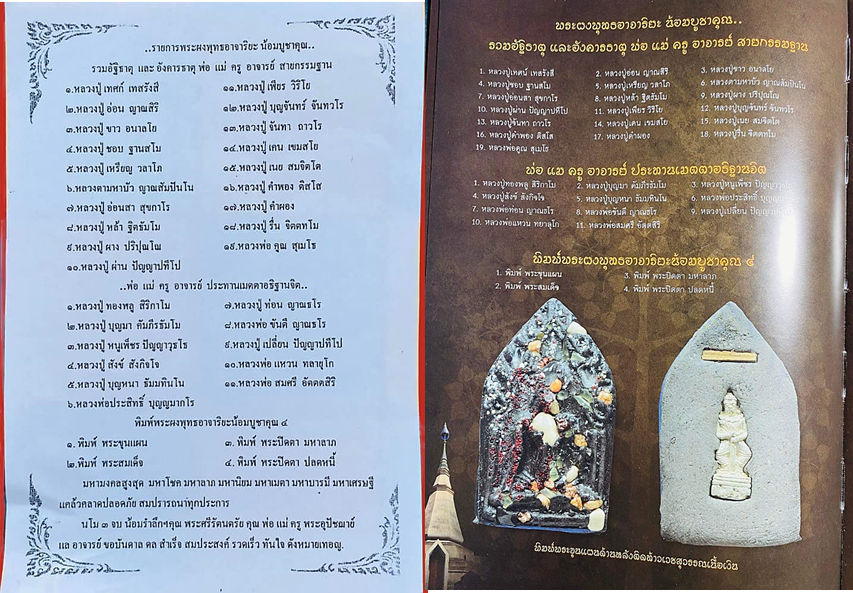 ..รายการพระผงพุทธอาจาริยะ น้อมบูชาคุณ..
รวมอัฐิธาตุ และ อังคารธาตุ พ่อ แม่ ครู อาจารย์ สายกรรมฐาน
๑.หลวงปู่เทศก์ เทสรังสี
๒.หลวงปู่อ่อน ญาณสิริ
๓.หลวงปู่ ขาว อนาลโย
๔.หลวงปู่ ชอบ ฐานสโม
๕.หลวงปู่ เหรียญ วลาโภ
๖.หลวงตามหาบัว ญาณสัมปันโน
๗.หลวงปู่อ่อนสา สุขกาโร
๘.หลวงปู่ หล้า ฐิตธัมโม
๙.หลวงปู่ ผาง ปริปุณโณ
๑๐.หลวงปู่ ผ่าน ปัญญาปทีโป
๑๑.หลวงปู่ เพียร วิริโย
๑๒.หลวงปู่ บุญจันทร์ จันทวโร
๑๓.หลวงปู่ จันทา ถาวโร
๑๔.หลวงปู่ เคน เขมสโย
๑๕.หลวงปู่ เนย สมจิตโต
๑๖.หลวงปู่ คำพอง ติสโส
๑๗.หลวงปู่ คำผอง
๑๘.หลวงปู่ รื่น จิตตทโม
๑๙.หลวงพ่อ คูณ สุเมโธ
..พ่อ แม่ ครู อาจารย์ ประทานเมตตาอธิฐานจิต..
๑.หลวงปู่ ทองพลู สิริกาโม
๒.หลวงปู่ บุญมา คัมภีรธัมโม
๓.หลวงปู่ หนูเพ็ชร ปัญญาวุธโธ
๔.หลวงปู่ สังข์ สังกิจโจ
๕.หลวงปู่ บุญหนา ธัมมทินโน
๖.หลวงพ่อประสิทธิ์ บุญญมากโร
๗.หลวงปู่ ท่อน ญาณธโร
๘.หลวงพ่อ ขันตี ญาณธโร
๙.หลวงปู่ เปลี่ยน ปัญญาปทีโป
๑๐.หลวงพ่อ แหวน ทลายุโก
๑๑.หลวงพ่อ สมศรี อัตตสิริ
พิมพ์พระผงพุทธอาจาริยะน้อมบูชาคุณ ๔
๑. พิมพ์ พระขุนแผน
๒.พิมพ์ พระสมเด็จ
๓. พิมพ์ พระปิดตา มหาลาภ
๔. พิมพ์ พระปิดตา ปลดหนี้
มหามงคลสูงสุด มหาโชค มหาลาภ มหานิยม มหาเมตา มหาบารมี มหาเศรษฐี
แคล้วคลาดปลอดภัย สมปรารถนาทุกประการ
นโม ๓ จบ น้อมรำลึกฯคุณ พระศรีรัตนตรัย คุณ พ่อ แม่ ครู พระอุปัชฌาย์
แล อาจารย์ ขอบันดาล ดล สำเร็จ สมประสงค์ รวดเร็ว ทันใจ ดังหมายเทอญ.
พระผงพุทธอาจาริยะ น้อมบูชาคุณ..
รวมอัฐิธาตุ และอังคารธาตุ พ่อ แม่ ครู อาจารย์ สายกรรมฐาน
1. หลวงปู่เทศน์ เทสรังสี
2. หลวงปู่อ่อน ญาณสิริ
3. หลวงปู่ขาว อนาลโย
4. หลวงปู่ชอบ ฐานสโม
5. หลวงปู่เหรียญ วลาโภ
6. หลวงตามหาบัว ญาณสัมปันโน
7. หลวงปู่อ่อนสา สุขกาโร
8. หลวงปู่หล้า ฐิตธัมโม
9. หลวงปู่ผาง ปริปุณโณ
10. หลวงปู่ผ่าน ปัญญาปทีโป
11. หลวงปู่เพียร วิริโย
12. หลวงปู่บุญจันทร์ จันทวโร
13. หลวงปู่จันทา ถาวโร
14. หลวงปู่เคน เขมสโย
15. หลวงปู่เนย สมจิตโต
16. หลวงปู่คำพอง ติสโส
17. หลวงปู่คำผอง
18. หลวงปู่รื่น จิตตทโม
19. หลวงพ่อคูณ สุเมโธ
พ่อ แม่ ครู อาจารย์ ประทานเมตตาอธิฐานจิต
1. หลวงปู่ทองพลู สิริกาโม
2. หลวงปู่บุญมา คัมภีรธัมโม
3. หลวงปู่หนูเพ็ชร
4. หลวงปู่สังข์ สังกิจโจ
5. หลวงปู่บุญหนา ธัมมทินโน
6. หลวงพ่อประสิทธิ์
7. หลวงพ่อท่อน ญาณธโร
8. หลวงพ่อขันตี ญาณธโร
9. หลวงปู่เปลี่ยน
10. หลวงพ่อแหวน ทยาลุโก
11. หลวงพ่อสมศรี อัตตสิริ
พิมพ์พระผงพุทธอาจาริยะน้อมบูชาคุณ ๔
1. พิมพ์ พระขุนแผน
2. พิมพ์ พระสมเด็จ
3. พิมพ์ พระปิดตา มหาลาภ
4. พิมพ์ พระปิดตา ปลดหนี้
พิมพ์พระขุนแผนด้านหลังติดท้าวเวสสุวรรณเนื้อเงิน